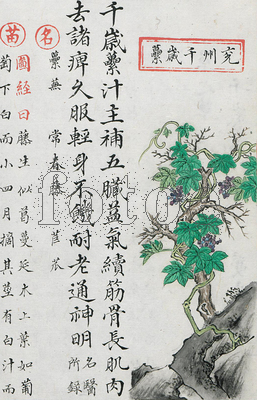 兗州千歲虆
千歲虆汁主補五臟益氣續筋骨長肌肉
去諸痺久服輕身不饑耐老通神明名醫
所錄
名
虆蕪 常春藤 苣瓜
苗
圖經曰藤生似葛蔓延木上葉如葡
萄下白而小四月摘其莖有白汁而